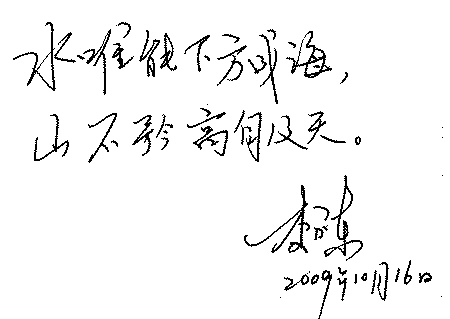 水唯能下方成海，
山不矜高自及天。
2009年10月16日